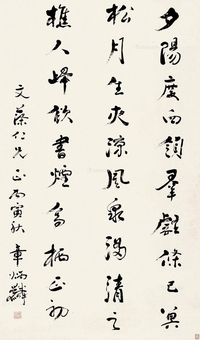 夕陽度西領羣壑倏已冥
松月生夜涼風泉滿清
樵人歸欲盡煙鳥栖定初
文蔡仁兄正丙寅秋章炳麟